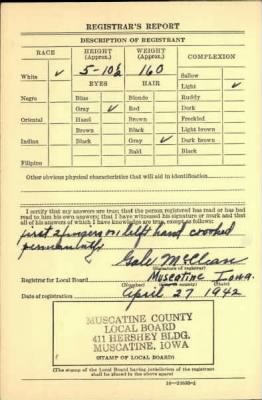 REGISTRAR'S REPORT
DESCRIPTION OF REGISTRANT
RACE HEIGHT (Approx.) WEIGHT (Approx.) COMPLEXION
White ✓ 5-10½ 160 Sallow
EYES HAIR Light ✓
Negro Blue Blonde Ruddy
Gray ✓ Red Dark
Oriental Hazel Brown Freckled
Brown Black Light brown
Indian Black Gray ✓ Dark brown
Bald Black
Filipino
Other obvious physical characteristics that will aid in identification
I certify that my answers are true; that the person registered has read or has had
read to him his own answers; that I have witnessed his signature or mark and that
all of his answers of which I have knowledge are true, except as follows:
first 2 fingers on left hand crooked
permanently
Gale McClean
(Signature of registrar)
Registrar for Local Board Muscatine Iowa.
(Number) (City or county) (State)
Date of registration April 27 1942
MUSCATINE COUNTY
LOCAL BOARD
411 HERSHEY BLDG.
MUSCATINE, IOWA
(STAMP OF LOCAL BOARD)
(The stamp of the Local Board having jurisdiction of the registrant
shall be placed in the above space)